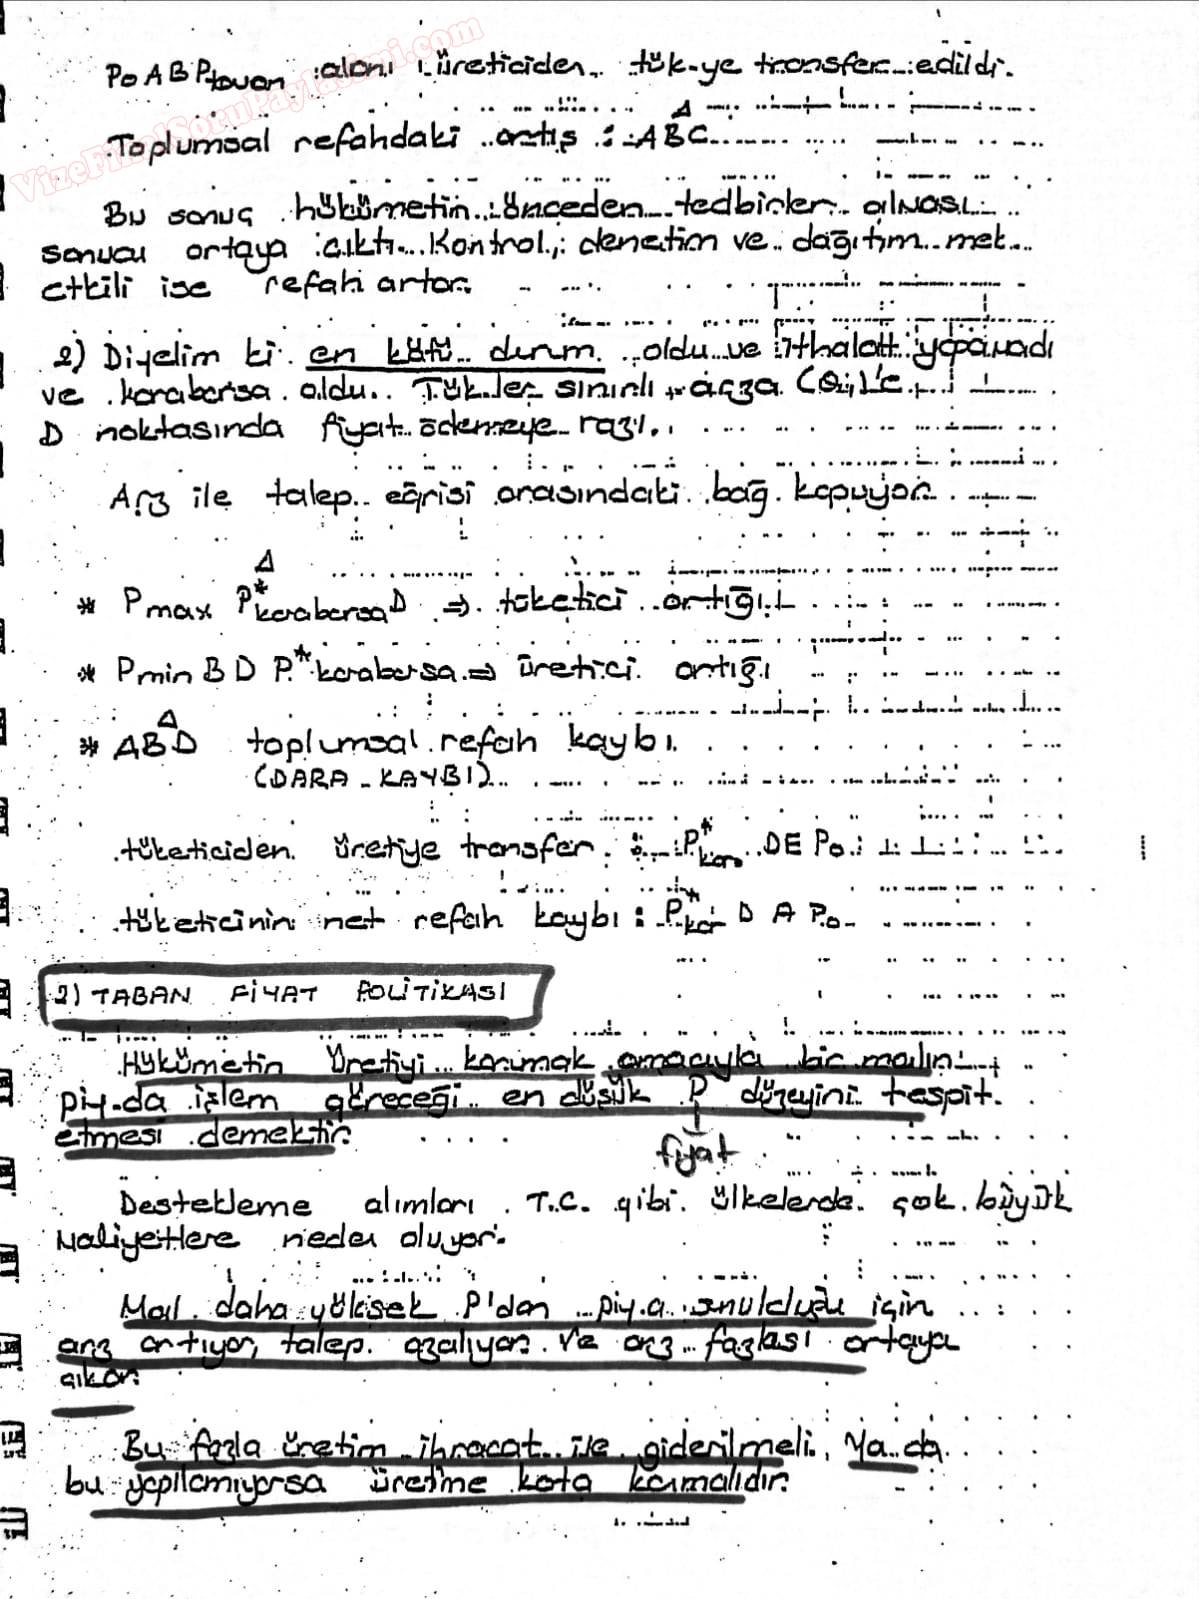 VizeFinalSoruPaylasimi.com
P₀ABPtavan alanı üreticiden tük-ye transfer edildi.
Toplumsal refahdaki artış : ABC
Bu sonuç hükümetin önceden tedbirler alması
sonucu ortaya çıktı. Kontrol, denetim ve dağıtım mek.
etkili ise refah artar.
2) Diyelim ki en kötü durum oldu ve ithalatı yapamadı
ve karaborsa oldu. Tük.ler sınırlı arza
D noktasında fiyat ödemeye razı.
Arz ile talep eğrisi arasındaki bağ kopuyor.
* Pmax P*karaborsa D ⇒ tüketici artığı
* Pmin B D P*karaborsa ⇒ üretici artığı
* ABD toplumsal refah kaybı
(DARA-KAYBI)
tüketiciden üretiye transfer : P*kar DE P₀
tüketicinin net refah kaybı : P*kar D A P₀
2) TABAN FİYAT POLİTİKASI
Hükümetin Üretiyi korumak amacıyla bir malın
piy-da işlem göreceği en düşük P düzeyini tespit
etmesi demektir.
fiyat
Destekleme alımları T.C. gibi ülkelerde çok büyük
maliyetlere neden oluyor.
Mal daha yüksek P'dan piy.a sunulduğu için
arz artıyor, talep azalıyor. Ve arz fazlası ortaya
çıkar.
Bu fazla üretim ihracat ile giderilmeli. Ya da
bu yapılamıyorsa üretime kota konmalıdır.